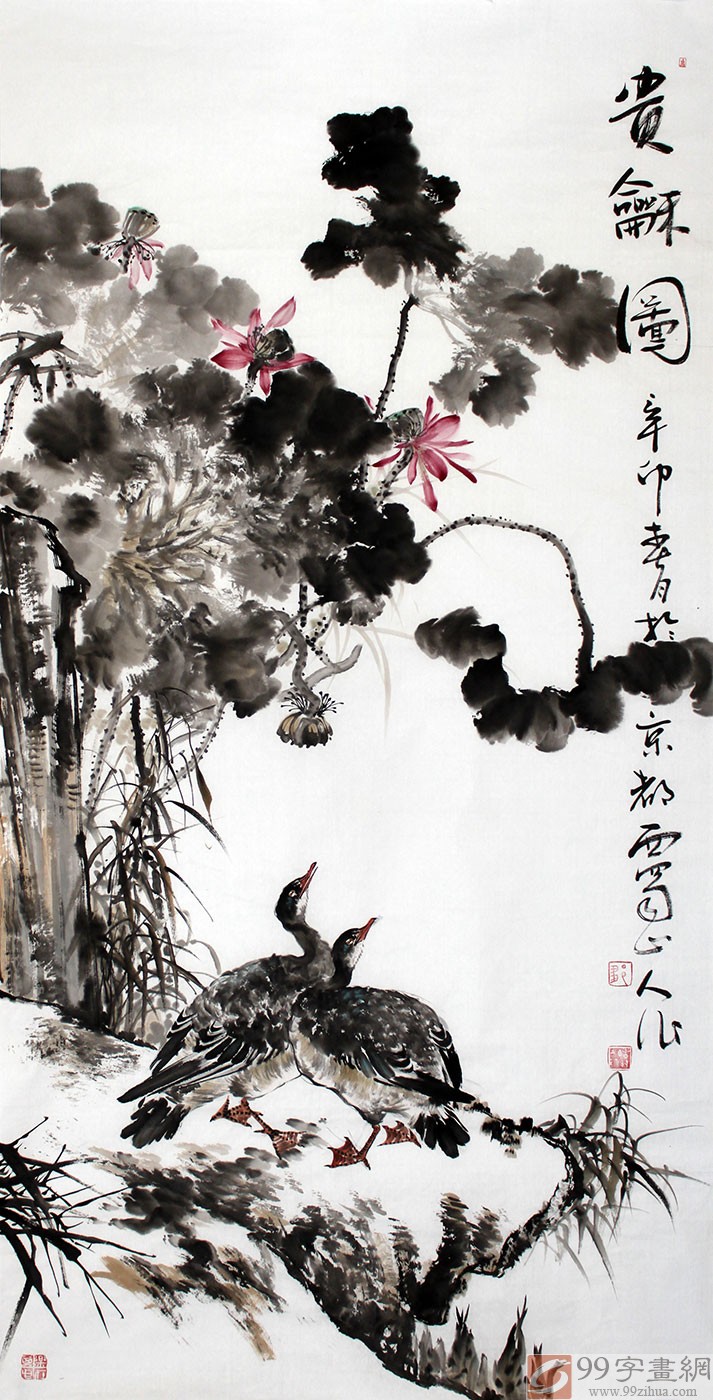 贵龢圖
辛卯春月於京都西蜀山人作
99字畫網
www.99zihua.com